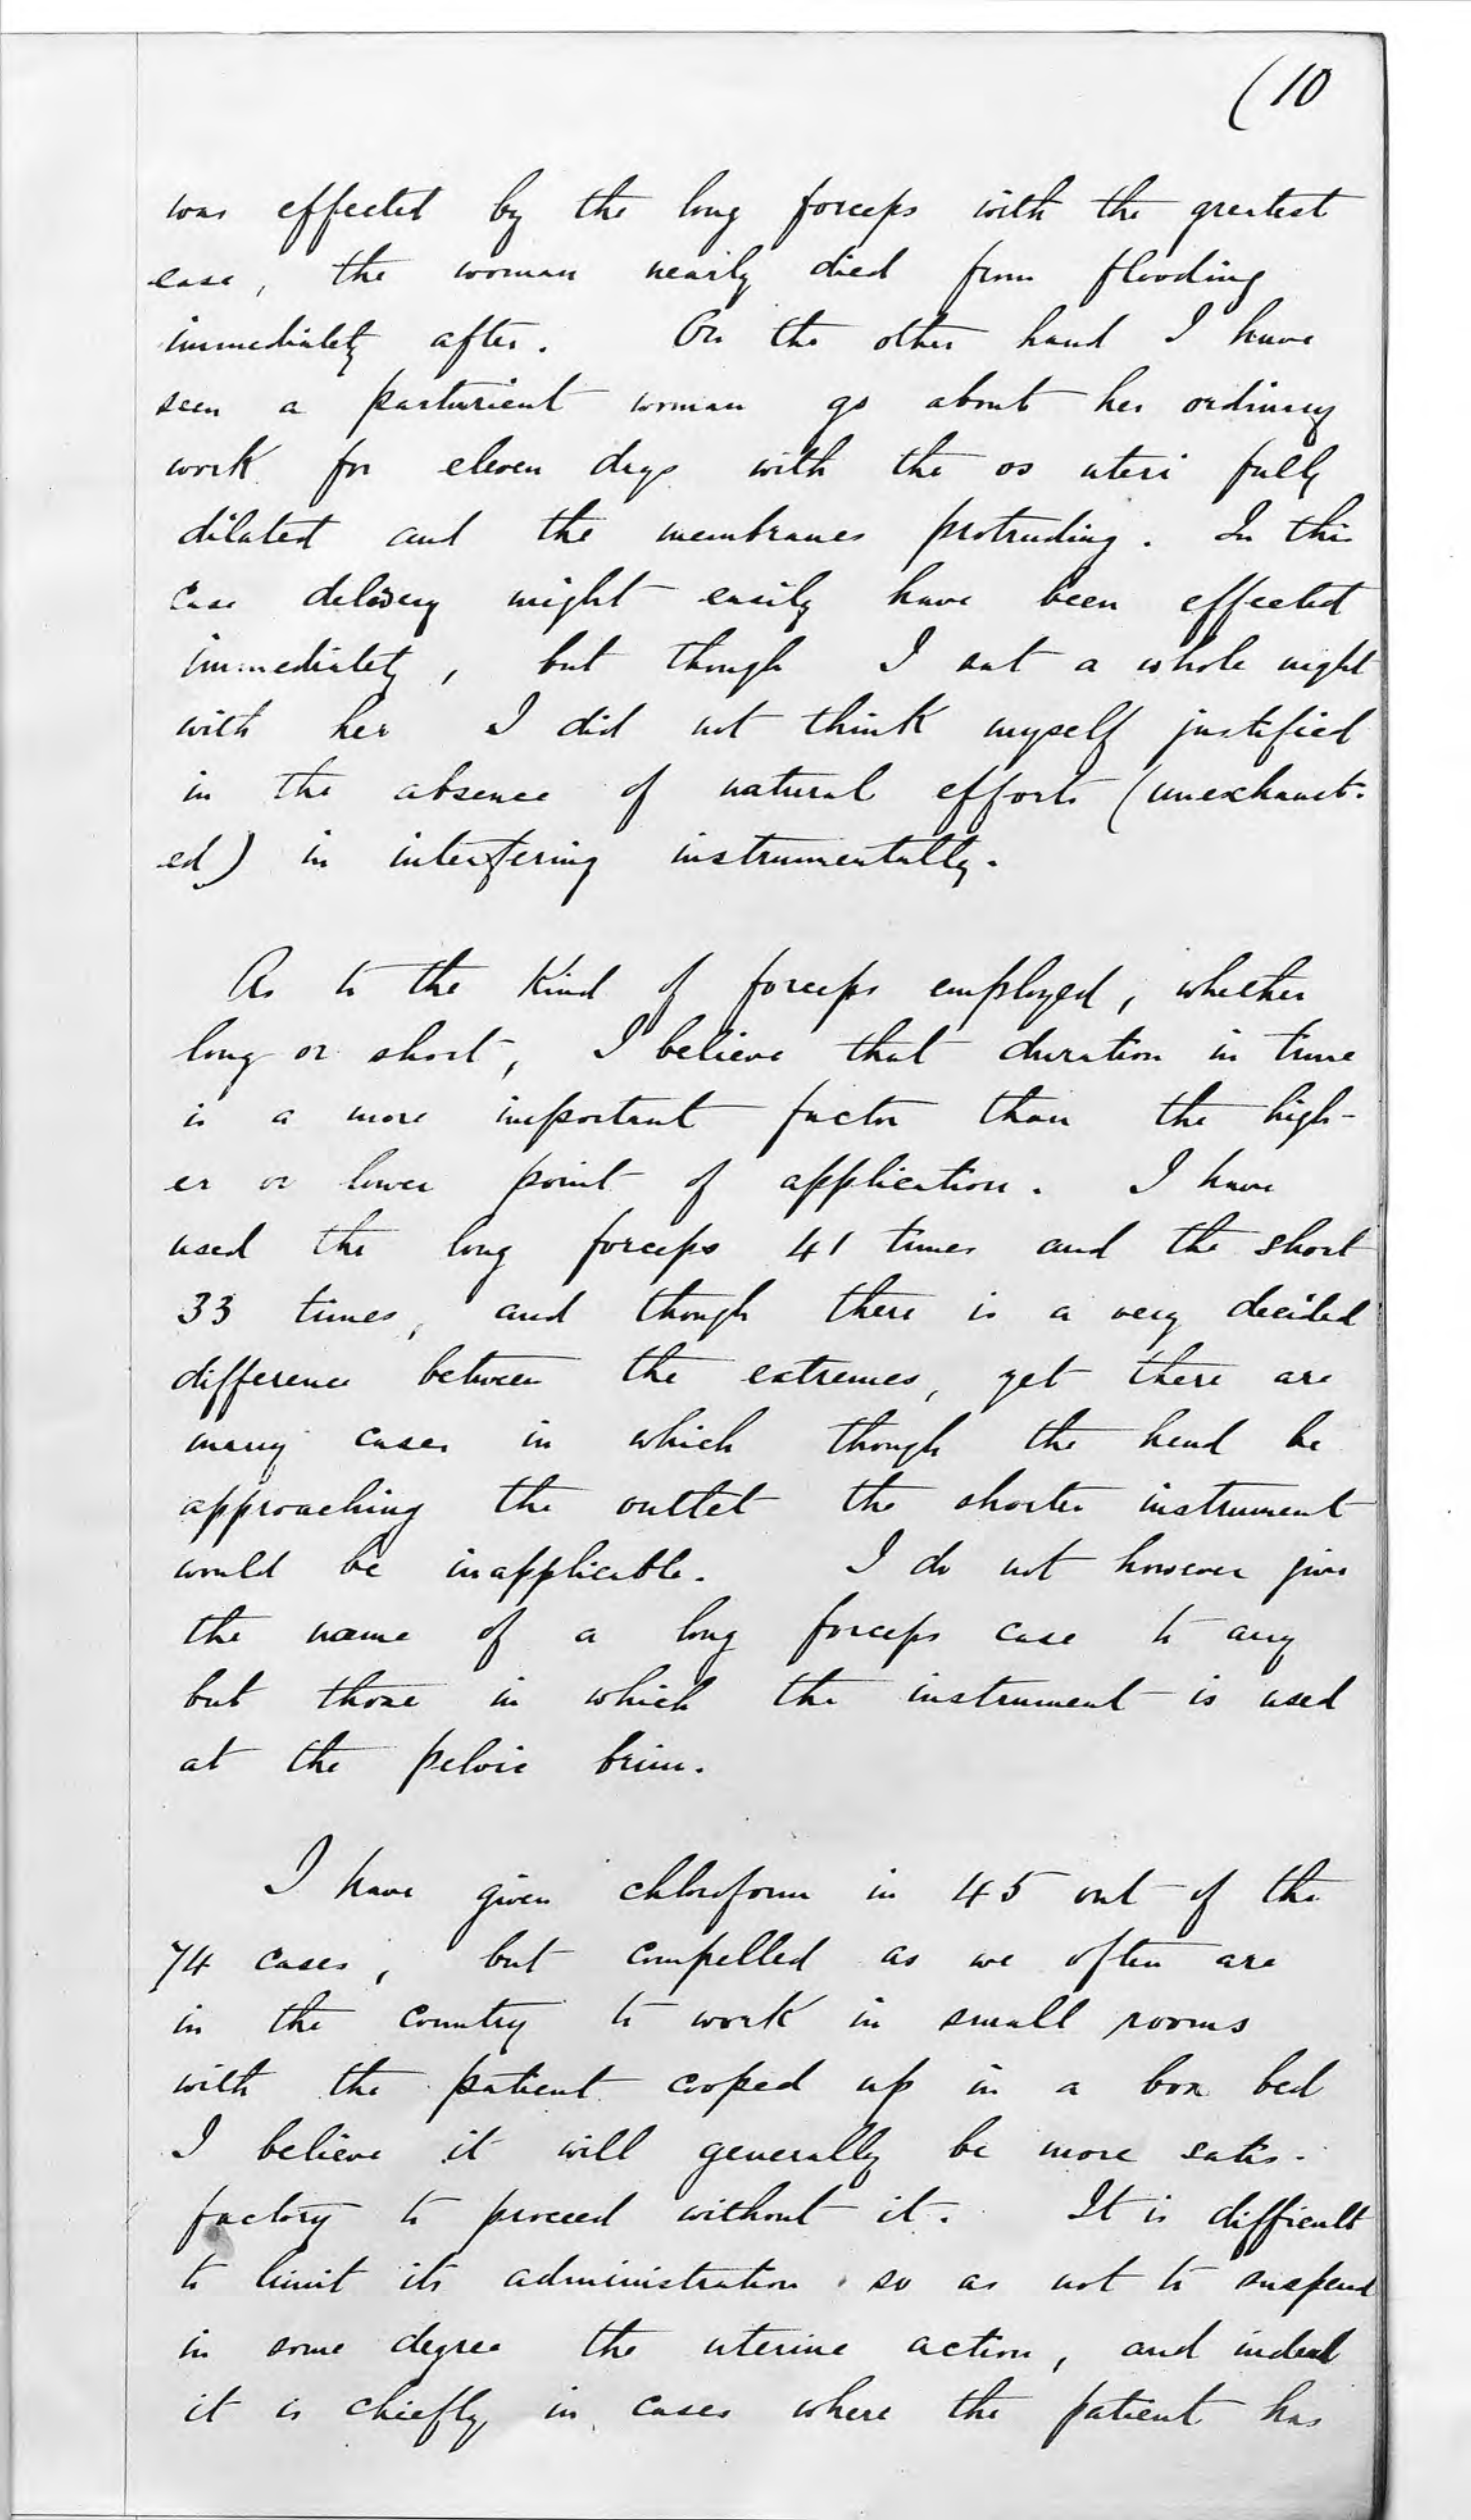 (10
was effected by the long forceps with the greatest
ease, the woman nearly died from flooding
immediately after. On the other hand I have
seen a parturient woman go about her ordinary
work for eleven days with the os uteri fully
dilated and the membranes protruding. In this
case delivery might easily have been effected
immediately, but though I sat a whole night
with her I did not think myself justified
in the absence of natural efforts (unexhaust-
ed) in interfering instrumentally.
As to the Kind of forceps employed, whether
long or short, I believe that duration in time
is a more important factor than the high-
er or lower point of application. I have
used the long forceps 41 times and the short
33 times, and though there is a very decided
difference between the extremes, yet there are
many cases in which though the head be
approaching the outlet the shorter instrument
would be inapplicable. I do not however give
the name of a long forceps case to any
but those in which the instrument is used
at the pelvic brim.
I have given chloroform in 45 out of the
74 cases, but compelled as we often are
in the country to work in small rooms
with the patient cooped up in a box bed
I believe it will generally be more satis-
factory to proceed without it. It is difficult
to limit its administration so as not to suspend
in some degree the uterine action, and indeed
it is chiefly in cases where the patient has